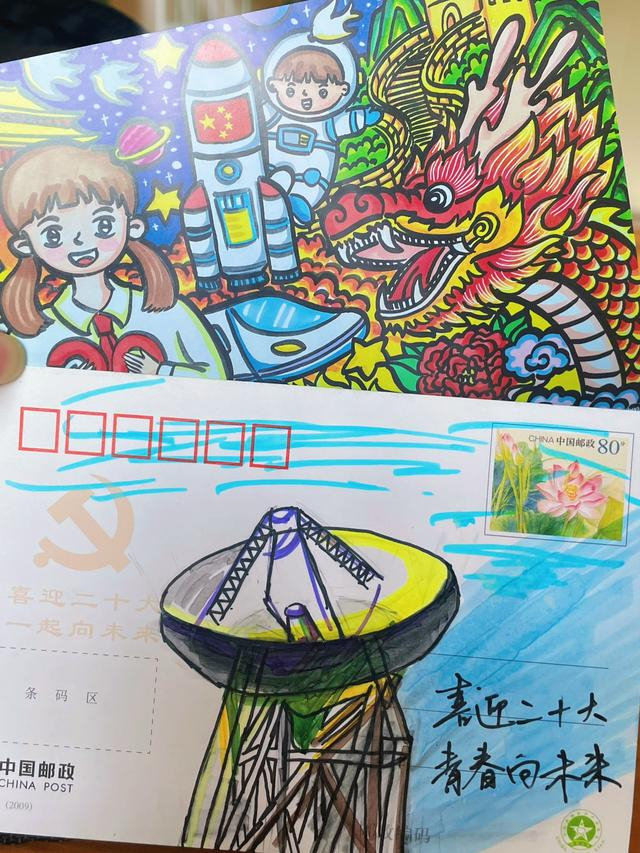 CHINA 中国邮政 80分
喜迎二十大
一起向未来
条码区
喜迎二十大
青春向未来
中国邮政
CHINA POST
(2009)
编码